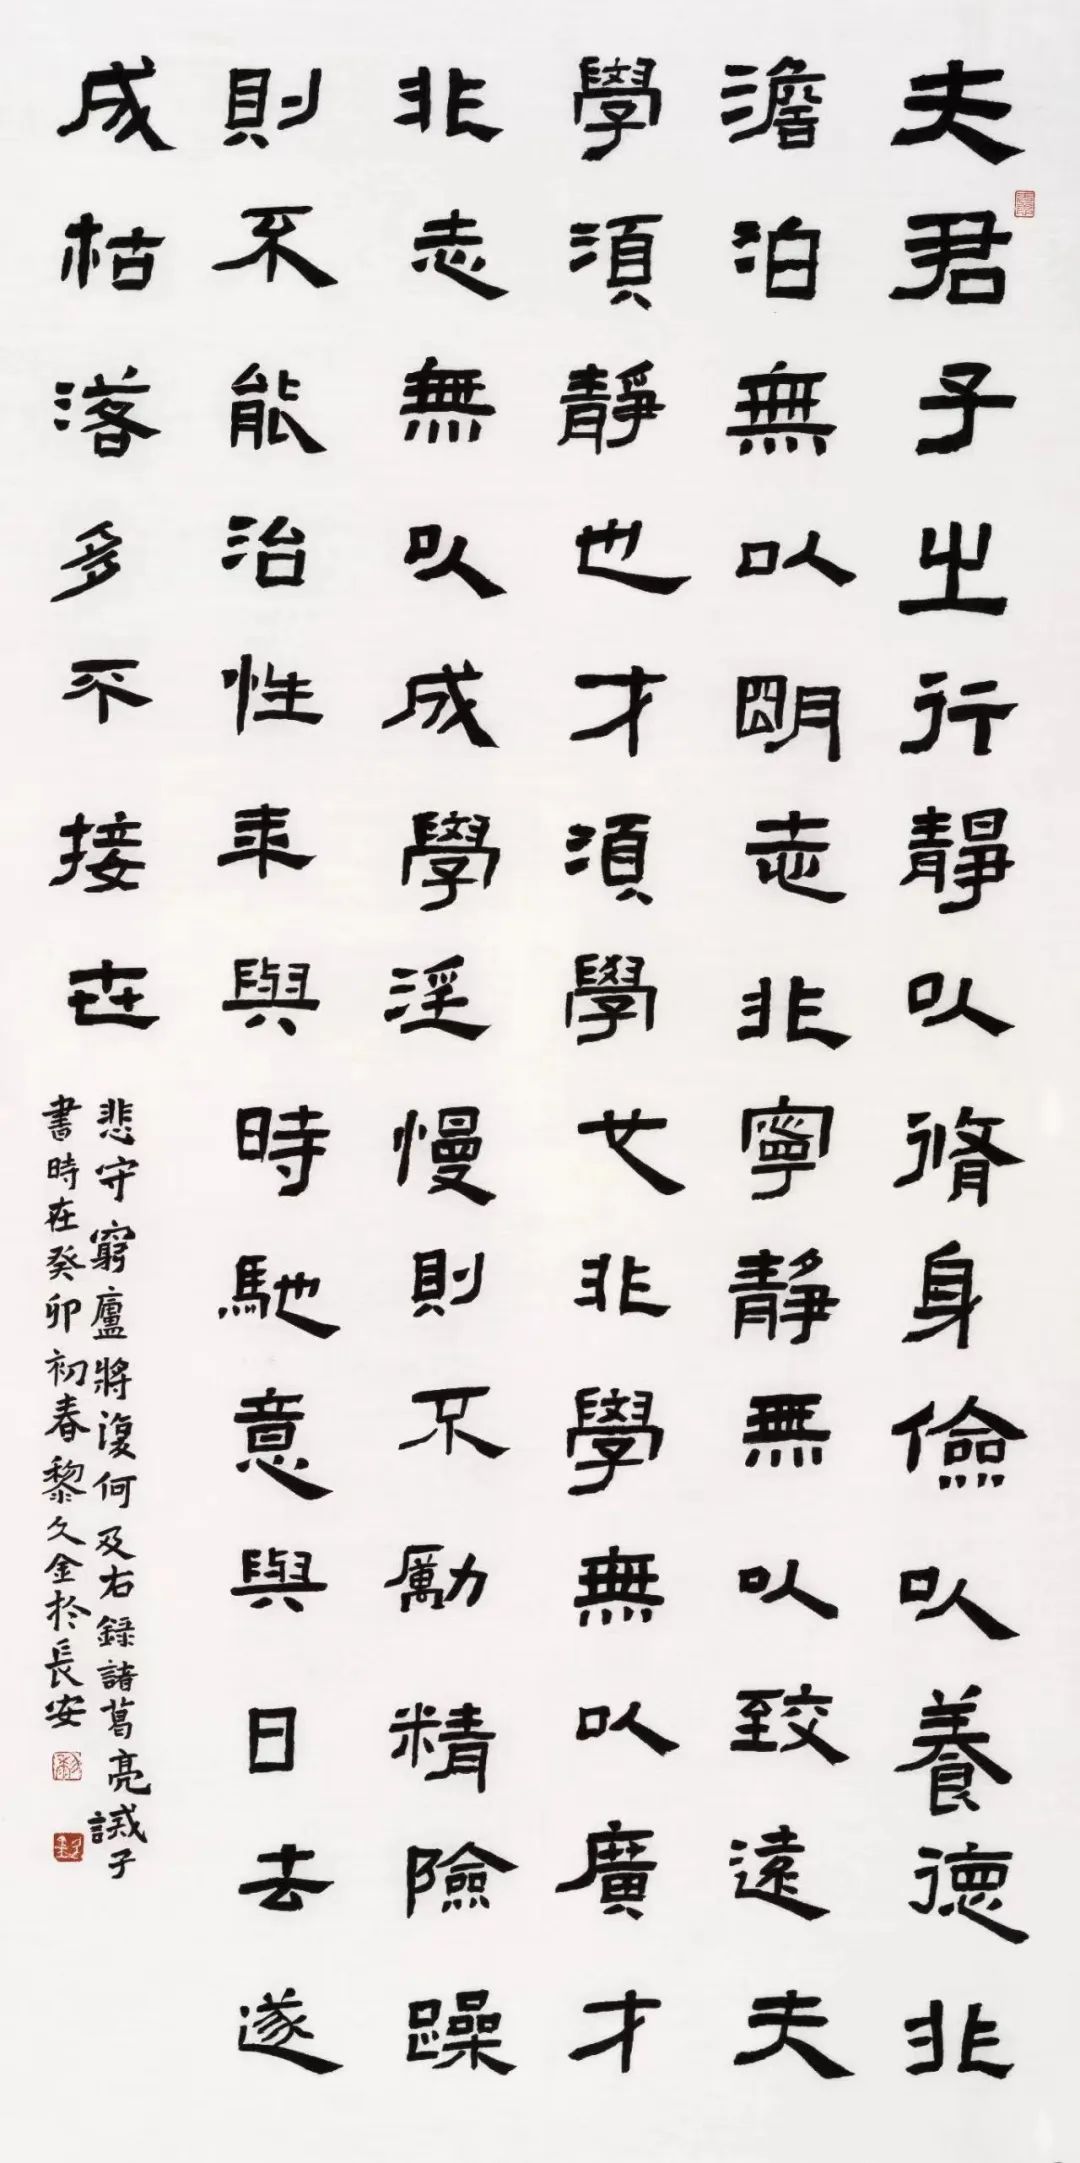 夫君子之行靜以脩身儉以養德非
澹泊無以明志非寧靜無以致遠夫
學須靜也才須學也非學無以廣才
非志無以成學淫慢則不勵精險躁
則不能治性年與時馳意與日去遂
成枯落多不接世
悲守窮廬將復何及右録諸葛亮誡子
書時在癸卯初春黎久金於長安